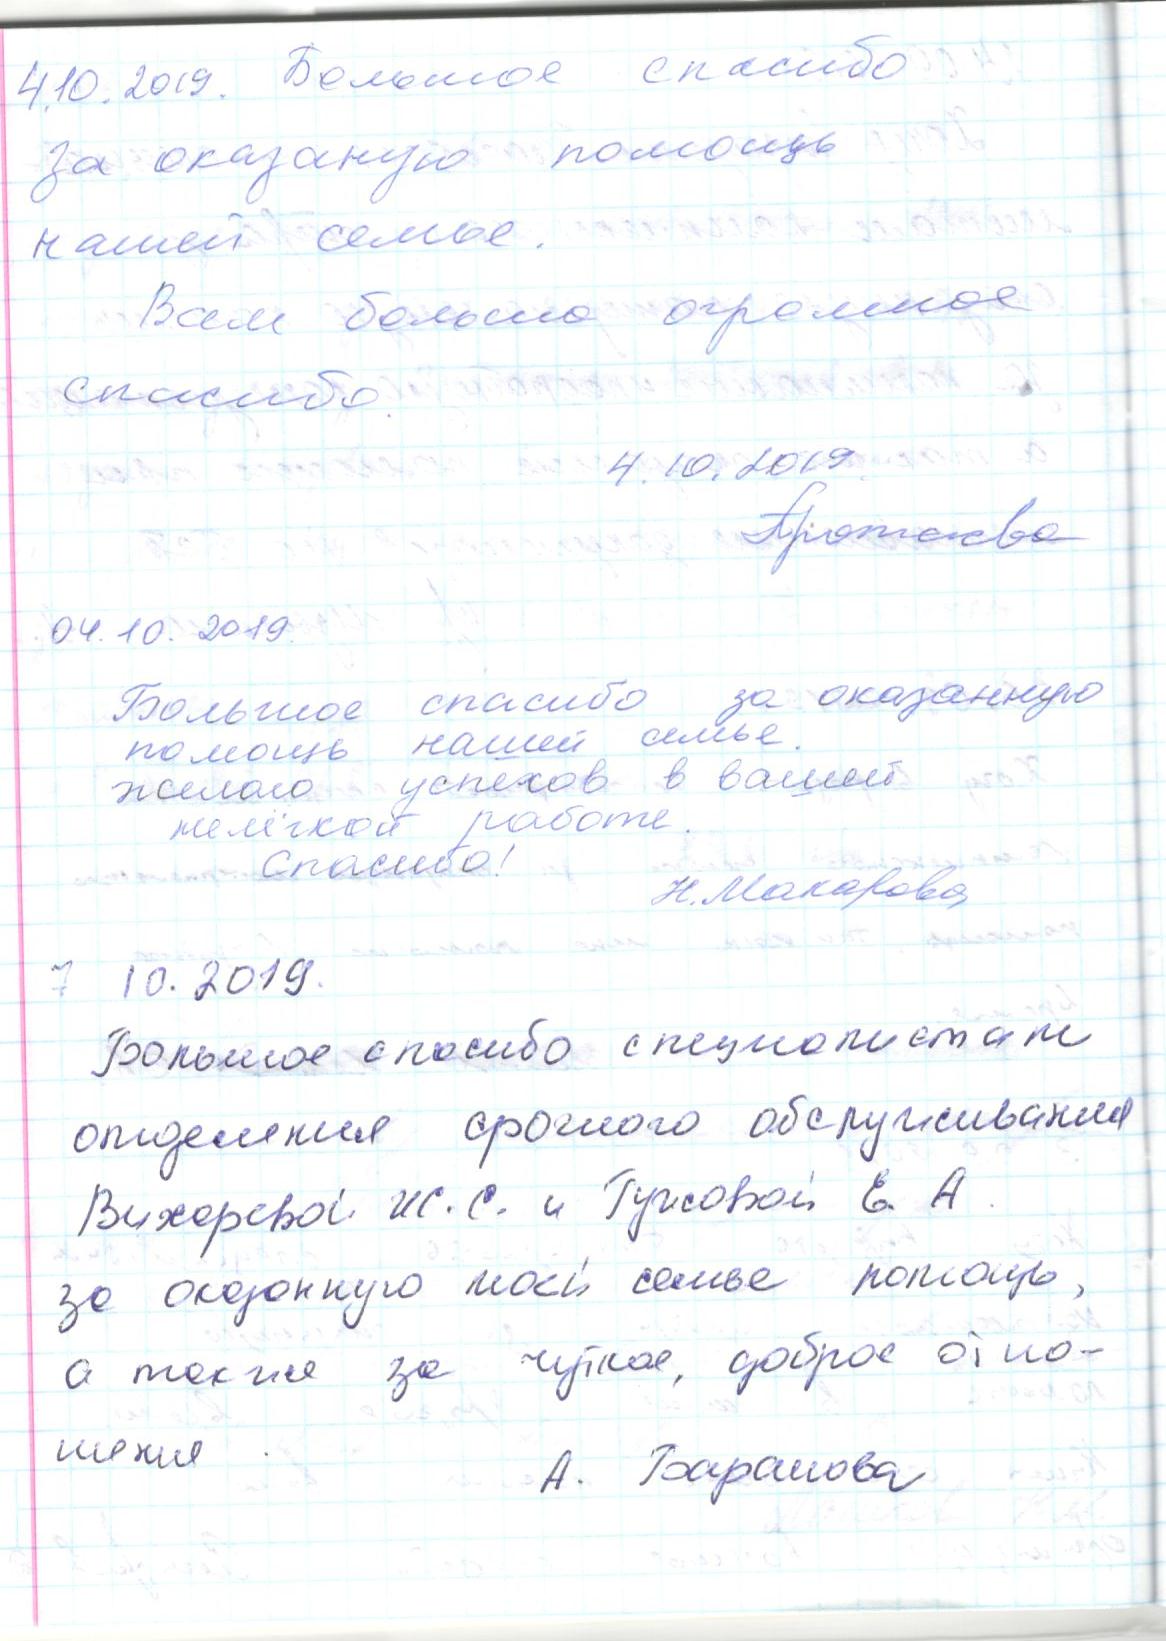 4.10.2019. Большое спасибо
за оказаную помощь
нашей семье.
Вам большо огромное
спасибо.
4.10.2019.
04.10.2019.
Большое спасибо за оказанную
помощь нашей семье.
желаю успехов в вашей
нелёгкой работе.
Спасибо!
Н. Макарова
7 10.2019.
Большое спасибо специалистам
отделения срочного обслуживания
Вихоревой Ж.С. и Гужовой Е. А.
за оказанную моей семье помощь,
а также за чуткое, доброе отно-
шения.
А. Баранова